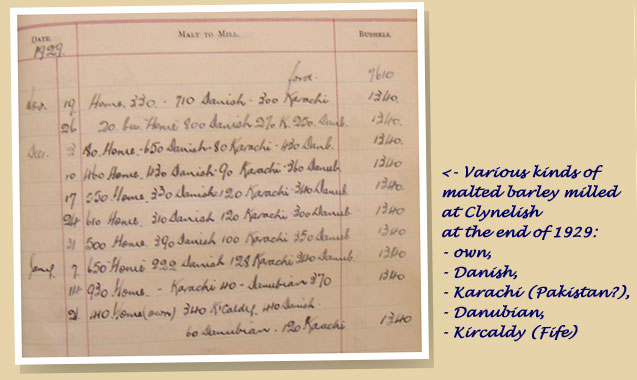 DATE. MALT TO MILL. BUSHELS.
1929.
ford. 7610
Nov. 19 Home. 330. - 710 Danish - 300 Karachi 1340.
26 20. bar. Home 800 Danish 270 K. 250. Danb. 1340.
Dec. 3 80 Home. - 650 Danish - 80 Karachi - 430 Danb. 1340.
10 460 Home. 430 Danish - 90 Karachi - 360 Danub. 1340
17 550 Home. 330 Danish - 120 Karachi - 340 Danub. 1340
24 610 Home. 310 Danish 120 Karachi 300 Danub 1340
31 500 Home. 390 Danish 100 Karachi 350 Danub. 1340
Jany. 7. 650 Home 222 Danish 128 Karachi 340 Danub. 1340
14 930 Home. - Karachi 40 - Danubian 370 1340
21 410 Home (own) 340 K'Caldy. 410 Danish -
60 Danubian. 120 Karachi 1340
<- Various kinds of
malted barley milled
at Clynelish
at the end of 1929:
- own,
- Danish,
- Karachi (Pakistan?),
- Danubian,
- Kircaldy (Fife)